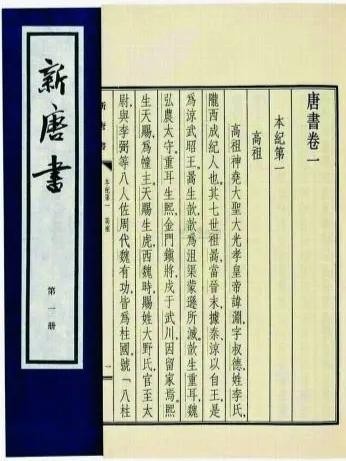 新唐書
第一册
唐書卷一
本紀第一
高祖
高祖神堯大聖大光孝皇帝諱淵，字叔德，姓李氏，
隴西成紀人也。其七世祖暠，當晉末，據秦、涼以自王，是
爲涼武昭王。暠生歆，歆爲沮渠蒙遜所滅。歆生重耳，魏
弘農太守。重耳生熙，金門鎮將，戍于武川，因留家焉。熙
生天賜，爲幢主。天賜生虎，西魏時，賜姓大野氏，官至太
尉，與李弼等八人佐周代魏有功，皆爲柱國，號「八柱
新唐書
本紀第一 高祖
一